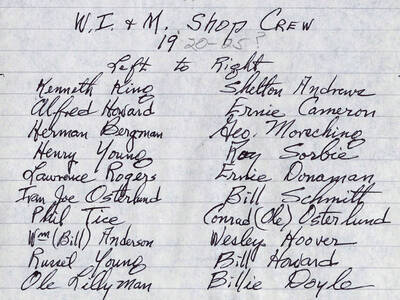 W. I. & M. Shop Crew
19 20-25?
Left to Right
Kenneth King Shelton Andrews
Alfred Howard Ernie Cameron
Herman Bergman Geo. Morsching
Henry Young Roy Sorbie
Lawrence Rogers Ernie Donaman
Ivan Joe Osterlund Bill Schmith
Phil Tice Conrad (Ole) Osterlund
Wm (Bill) Anderson Wesley Hoover
Russel Young Bill Howard
Ole Lillyman Billie Doyle